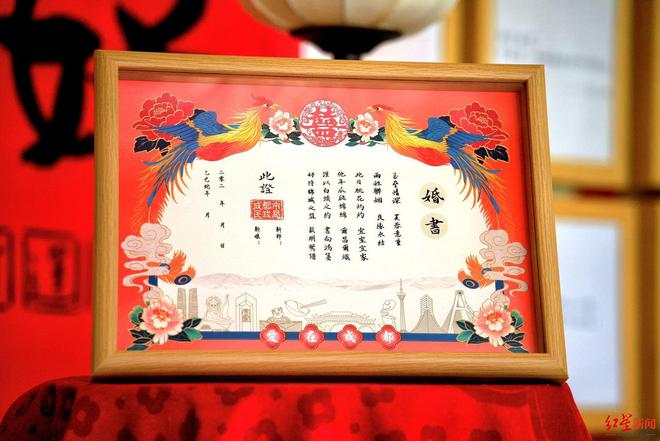 婚書
玉壘情深 芙蓉意重
兩姓聯姻 良緣永結
此日桃花灼灼 宜室宜家
他年瓜瓞綿綿 爾昌爾熾
謹以白頭之約 書向鴻箋
好將錦城之盟 載明鴛譜
新郎：
新娘：
此證
成都市民政局
二零二 年 月 日
乙巳蛇年 月
愛在成都
红星新闻